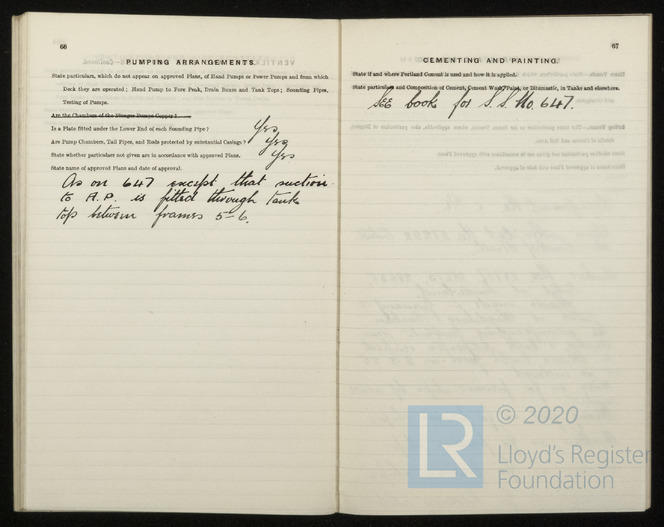 66
PUMPING ARRANGEMENTS.
State particulars, which do not appear on approved Plans, of Hand Pumps or Power Pumps and from which
Deck they are operated; Hand Pump to Fore Peak, Drain Boxes and Tank Tops; Sounding Pipes,
Testing of Pumps.
Are the Chambers of the Plunger Pumps Copper?
Is a Plate fitted under the Lower End of each Sounding Pipe? Yes
Are Pump Chambers, Tail Pipes, and Rods protected by substantial Casings? Yes
State whether particulars not given are in accordance with approved Plans. Yes
State name of approved Plans and date of approval.
As on 647 except that suction
to A.P. is fitted through tank
top between frames 5-6.
67
CEMENTING AND PAINTING.
State if and where Portland Cement is used and how it is applied.
State particulars and Composition of Cement, Cement Wash, Paint, or Bitumastic, in Tanks and elsewhere.
See book for S.S. No. 647.
LR
© 2020
Lloyd's Register
Foundation